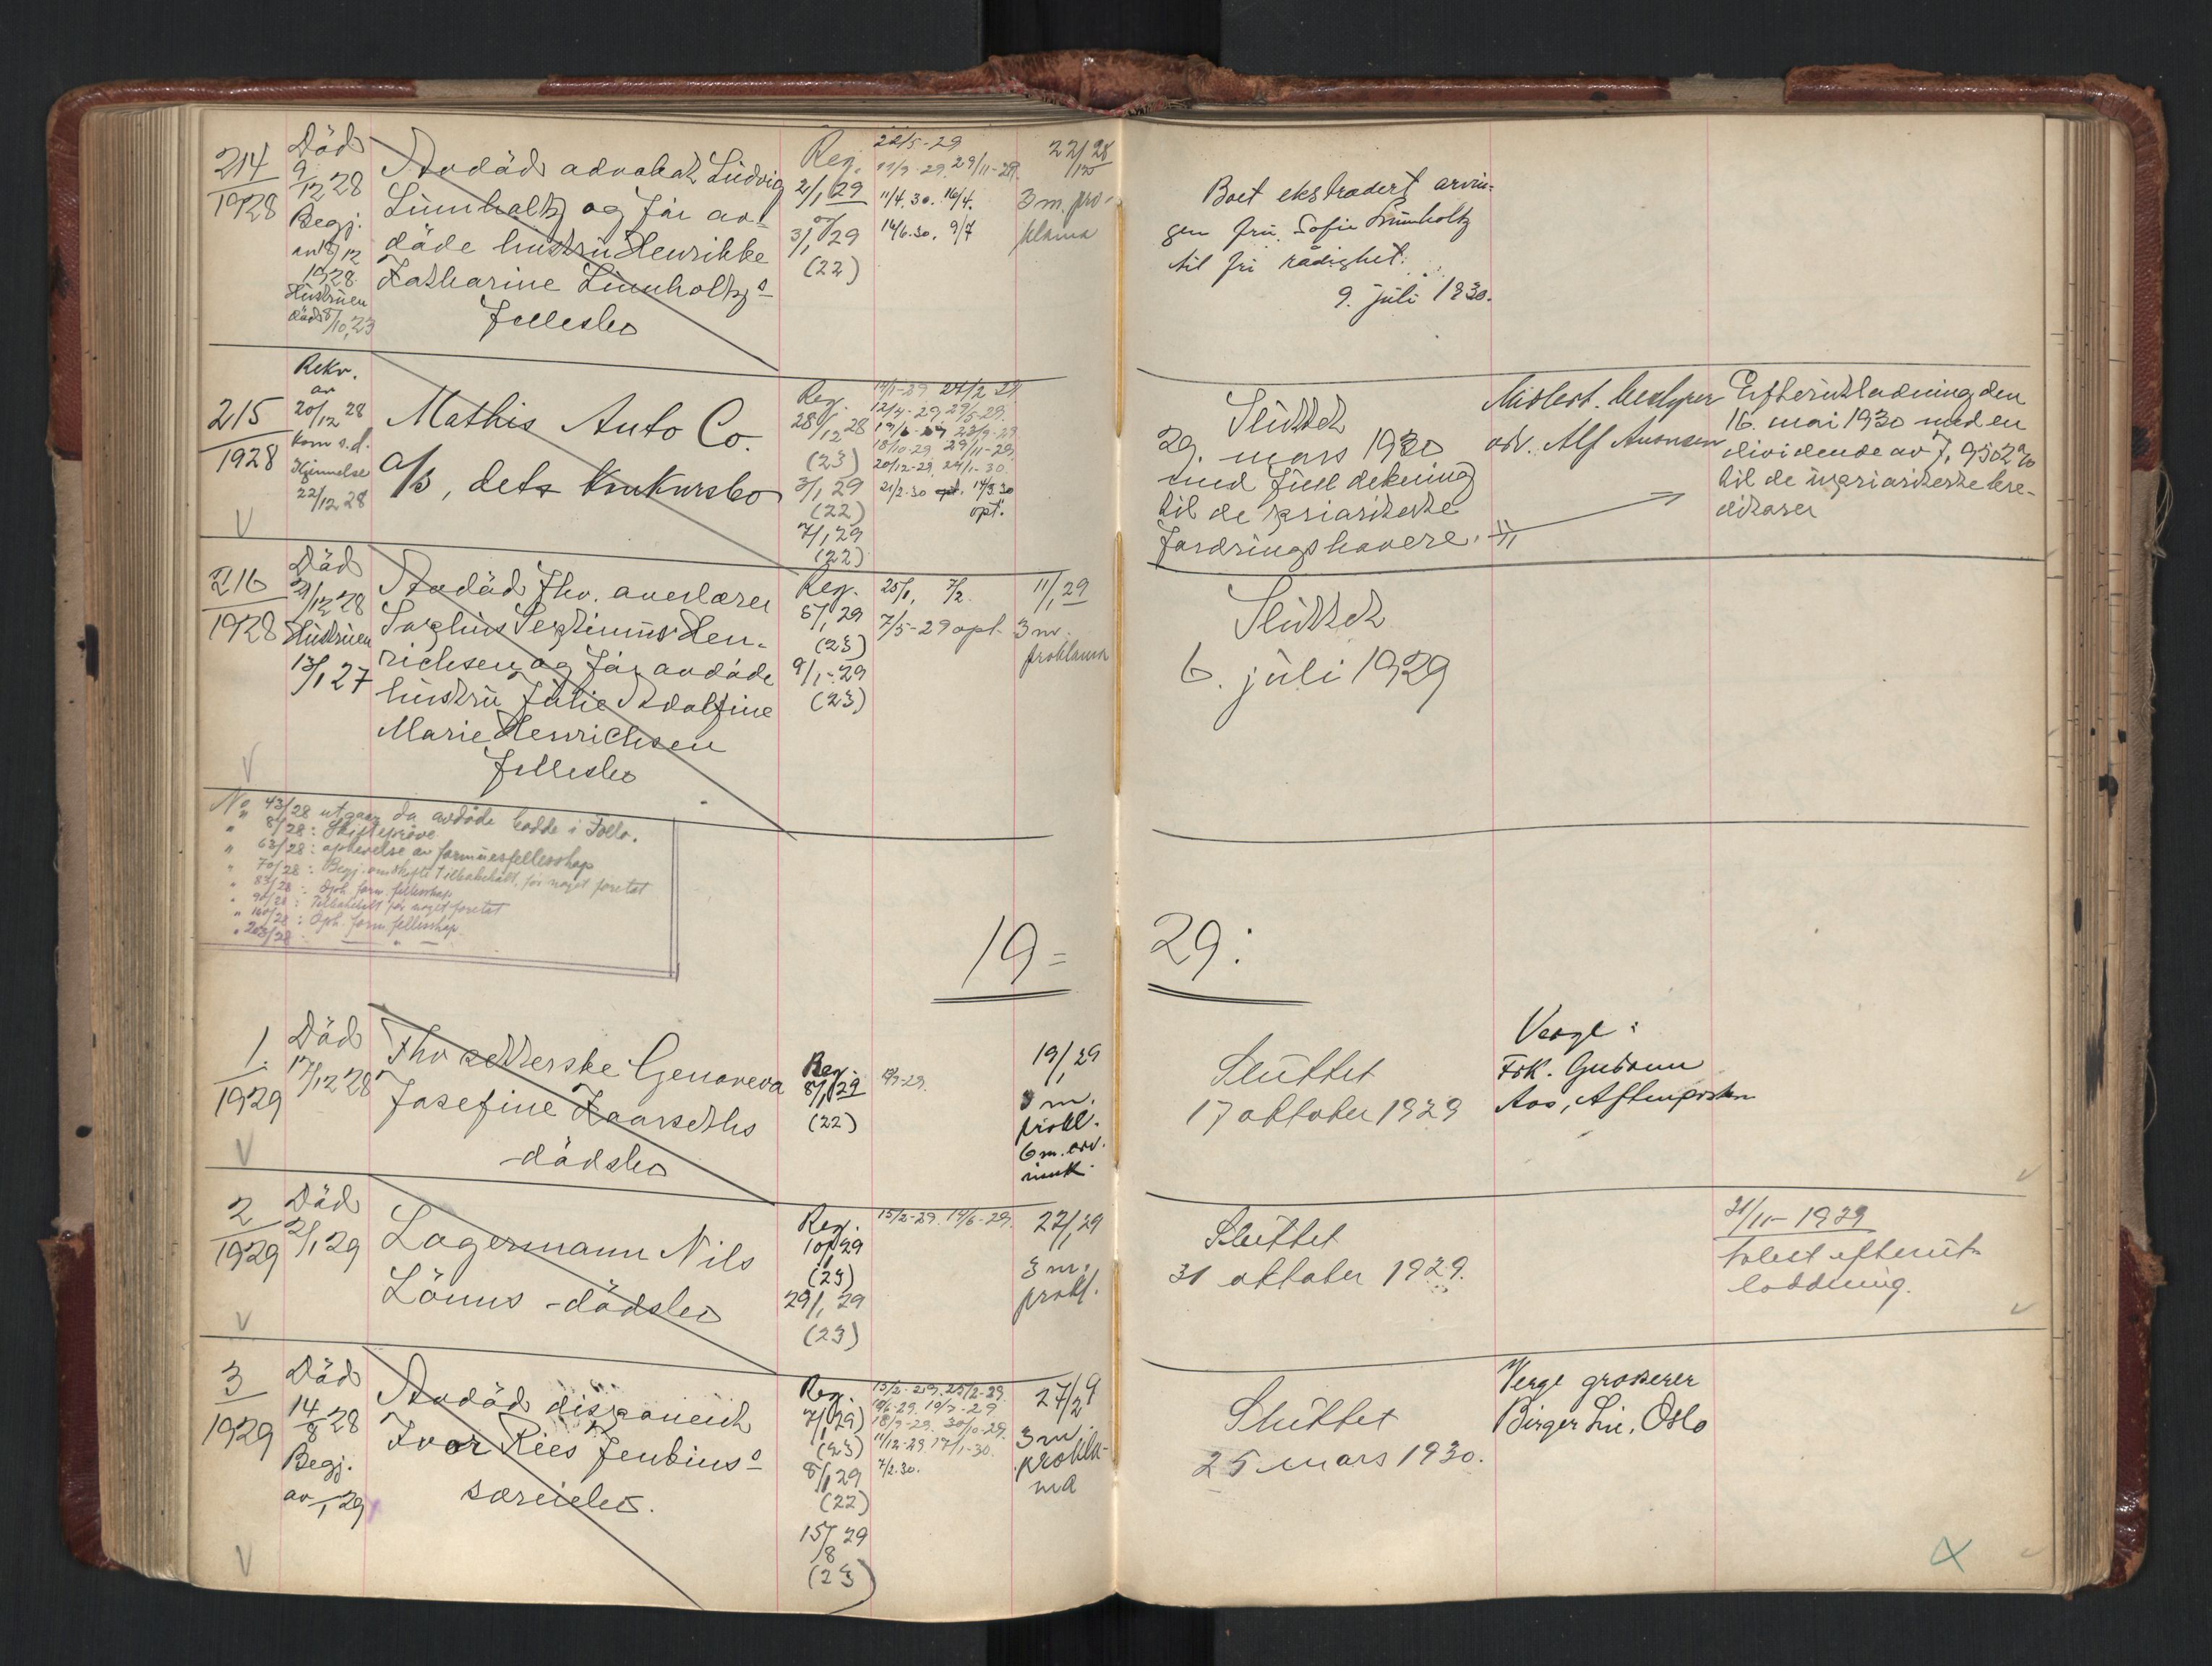 214
1928
Död
9/12 28
Begj.
Hustruen
död 8/10, 23
Avdöd advokat Ludvig
Lumholtz og för av-
döde hustru Henrikke
Katharine Lumholtz's
Fellesbo
Reg.
2/1, 29
3/1, 29
(22)
22/5-29
29/11-29.
11/4. 30. 16/4.
16/6.30. 9/7
22/12 28
3 m. pro-
klama
Boet ekstradert arvin-
gen fru. Sofie Lumholtz
til fri rådighet.
9. juli 1930.
215
1928
Rekv.
av
20/12 28
kom s.d.
Kjennelse
22/12 28
V
Mathis Auto Co.
A/S, dets konkursbo
Reg.
28/12 28
(23)
3/1, 29
(22)
7/1, 29
(22)
12/4-29 29/5-29.
18/10-29. 29/11-29.
20/12-29. 24/1-30.
21/2.30 opt. 14/3.30
opt.
Sluttet
29. mars 1930
med full dekning
til de prioriterte
fordringshavere.
Midlert. bestyrer
adv. Alf Aronsen
Efterutlodning den
16. mai 1930 med en
dividende av 7,9502%
til de uprioriterte kre-
ditorer
216
1928
Död
21/12 28
Hustruen
13/1 27
V
Avdöd Fhv. overlærer
Sophus Septimus Hen-
richsen og för avdöde
hustru Julie Adolfine
Marie Henrichsen
Fellesbo
Reg.
5/1, 29
(23)
9/1-29
(23)
25/1, 7/2.
7/5-29 opt.
11/1, 29
3 m.
proklama
Sluttet
6. juli 1929
No 43/28 utgaar da avdöde bodde i Follo.
" 8/28: Skifteprøve
" 63/28: ophevelse av formuesfellesskap
" 70/28: Begj. om skifte tilbakekalt, før noget foretat
" 83/28: Oph. form. fellesskap
" 90/28: Tilbakekalt før noget foretat
" 160/28: Oph. form. fellesskap
" 203/28 — " —
19= 29:
1.
1929
Död
17/12 28
V
Fhv setterske Genoveva
Josefine Kaarseths
-dödsbo
Reg.
8/1, 29
(22)
19/1, 29
3 m.
prokl.
6 m. arv.
innk.
Sluttet
17 oktober 1929
Verge:
Frk. Gudrun
Aas, Aftenposten
2
1929
Död
2/1, 29
V
Lagermann Nils
Lönns -dödsbo
Reg.
10/1 29
(23)
29/1, 29
(23)
15/2-29. 14/6-29.
22/1, 29
3 m.
prokl.
Sluttet
31 oktober 1929.
21/11-1929
holdt efterut-
lodning.
3
1929
Död
14/8 28
Begj.
av /1, 29
V
Avdöd disponent
Ivor Rees Jenkins's
særeiebo.
Reg.
7/1, 29
(23)
8/1, 29
(22)
15/8 29
(23)
15/2-29. 25/2-29.
18/9-29. 30/10-29.
11/12-29. 17/1-30.
7/2.30.
27/2 9
3 m.
prokla-
ma
Sluttet
25 mars 1930.
Verge grosserer
Birger Lie, Oslo